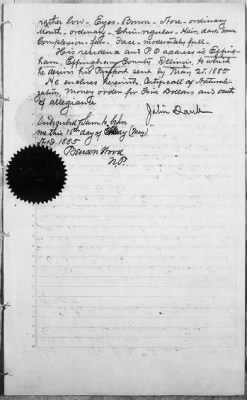 rather low - Eyes - Brown - Nose - ordinary
Mouth - ordinary - Chin - regular - Hair, dark brown
Complexion - fair - Face - moderately full.
His residence and P.O. address is Effing-
ham, Effingham County, Illinois, to which
he desires his Passport sent by May 21. 1885
He encloses herewith, Certificate of Natural-
ization, Money order for Five Dollars and oath
of allegiance
Subscribed & Sworn to before
me this 18th day of May (May)
A.D. 1885
Benson Wood
N.P.